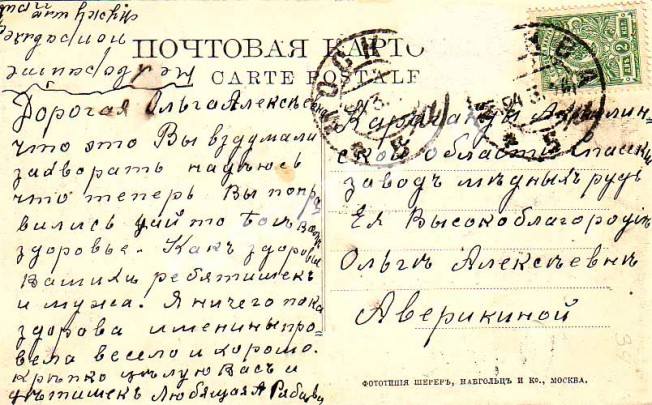 ПОЧТОВАЯ КАРТО
CARTE POSTALE
Дорогая Ольга Алексее
что это Вы вздумали
захворать надеюсь
что теперь Вы попра
вились дай то Богъ Вамъ
здоровье. Какъ здоровье
Вашихъ ребятишекъ
и мужа. Я ничего пока
здорова именины про-
вела весело и хорошо.
Крѣпко цѣлую Васъ и
дѣтишекъ Любящая А
МОСКВА
2 КОП
Караганды Акмолин-
ской области Спасскій
заводъ мѣдныхъ рудъ
Ея Высокоблагородію
Ольгѣ Алексѣевнѣ
Аверикиной
ФОТОТИПІЯ ШЕРЕРЪ, НАБГОЛЬЦЪ И Ко., МОСКВА.